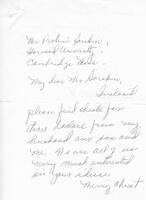 Mr Pitirim Sorokin,
Harvard University,
Cambridge Mass.
My dear Mr Sorokin,
Inclosed
please find checks for
three dollars from my
husband our son and
me. We are all of us
very much interested
in your ideas.
Merry Christ